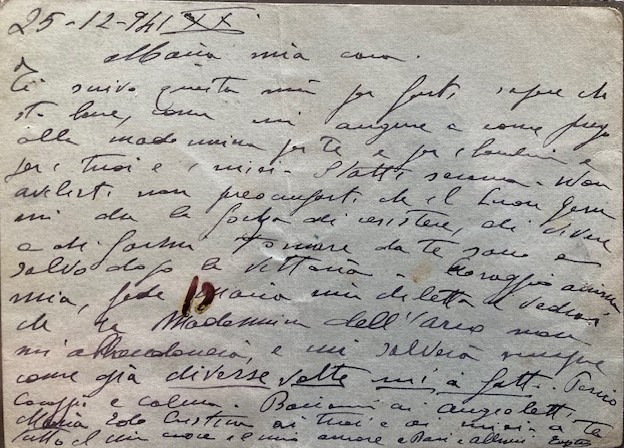 25-12-941 XX
Maria mia cara.
Ti scrivo questa mia per farti sapere che
sto bene, come mi auguro e come prego
alla madonnina per te e per i bambini e
per i tuoi e i miei. Statti serena. Non
avvilirti non preoccuparti che il buon Gesù
mi da la forza di resistere, di vivere
e di farmi tornare da te sano e
salvo dopo la vittoria. Coraggio anima
mia, fede Maria mia diletta e vedrai
che la Madonnina dell'Arco non
mi abbandonerà, e mi salverà sempre
come già diverse volte mi à fatto.
Coraggio e calma Baciami ai angioletti, te
Maria Edo Cristina ai tuoi e ai miei a te
tutto il mio cuore e il mio amore e Baci